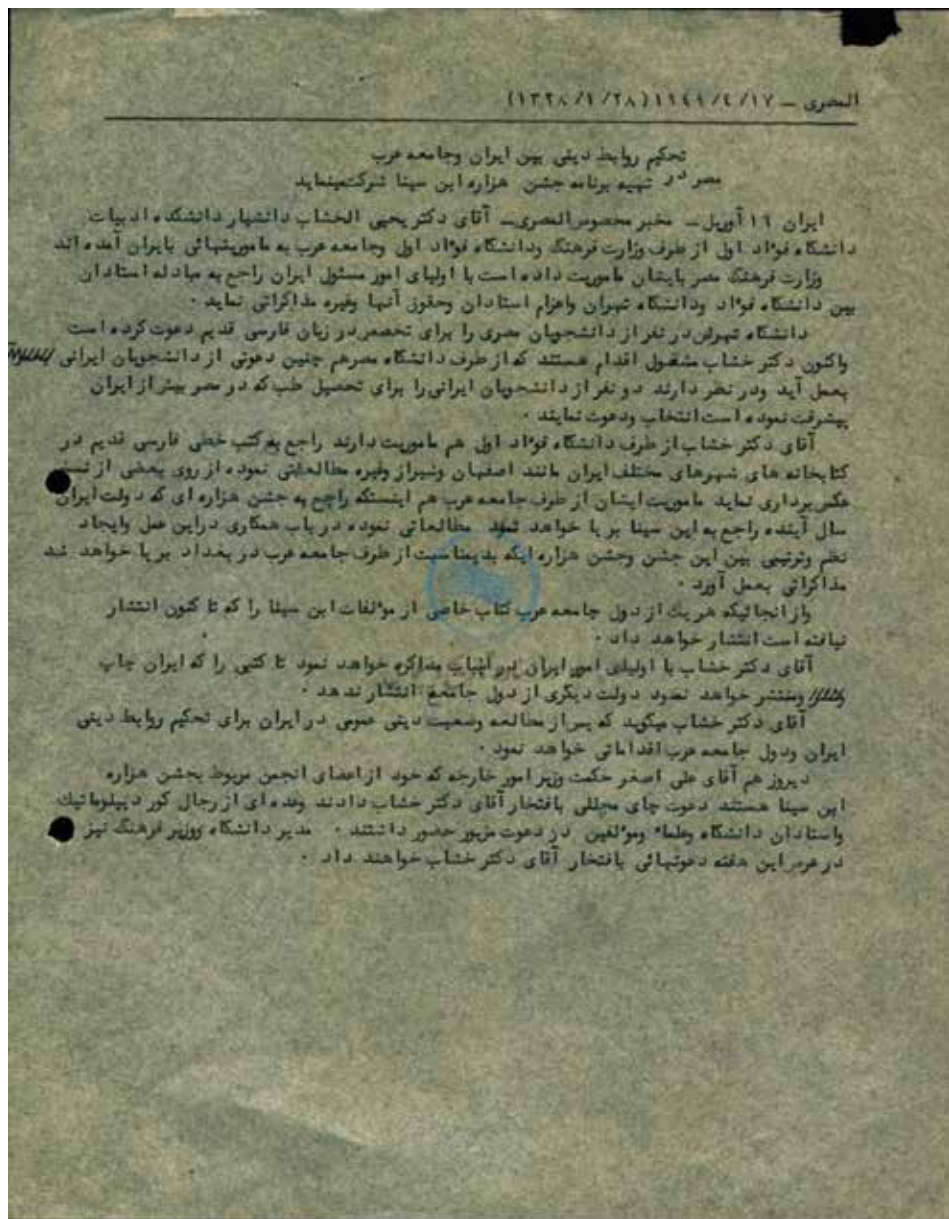 المصری — ١٧/ ٤/ ١٩٤٩ (١٣٢٨/١/٢٨)
تحکیم روابط دینی بین ایران وجامعه عرب
مصر در تهیه برنامه جشن هزاره ابن سینا شرکت مینماید
ایران ١٦ آوریل — مخبر مخصوص المصری — آقای دکتر یحیی الخشاب دانشیار دانشکده ادبیات
دانشگاه فوٴاد اول از طرف وزارت فرهنگ ودانشگاه فوٴاد اول وجامعه عرب به ماموریتهائی بایران آمده اند
وزارت فرهنگ مصر بایشان ماموریت داده است با اولیای امور مسئول ایران راجع به مبادله استادان
بین دانشگاه فوٴاد ودانشگاه تهران واعزام استادان وحقوق آنها وغیره مذاکراتی نماید ٠
دانشگاه تهران در نفر از دانشجویان مصری را برای تخصص در زبان فارسی قدیم دعوت کرده است
واکنون دکتر خشاب مشغول اقدام هستند که از طرف دانشگاه مصرهم چنین دعوتی از دانشجویان ایرانی
بعمل آید ودر نظر دارند دو نفر از دانشجویان ایرانی را برای تحصیل طب که در مصر بیش از ایران
پیشرفت نموده است انتخاب ودعوت نمایند ٠
آقای دکتر خشاب از طرف دانشگاه فوٴاد اول هم ماموریت دارند راجع به کتب خطی فارسی قدیم در
کتابخانه های شهرهای مختلف ایران مانند اصفهان وشیراز وغیره مطالعاتی نموده از روی بعضی از
عکس برداری نماید ماموریت ایشان از طرف جامعه عرب هم اینستکه راجع به جشن هزاره ای که دولت ایران
سال آینده راجع به ابن سینا بر پا خواهد نمود مطالعاتی نموده در باب همکاری دراین عمل وایجاد
نظم وترتیبی بین این جشن وجشن هزاره ایکه بدینمناسبت از طرف جامعه عرب در بغداد بر پا خواهد شد
مذاکراتی بعمل آورد ٠
واز انجائیکه هر یک از دول جامعه عرب کتاب خاصی از موٴلفات ابن سینا را که تا کنون انتشار
نیافته است انتشار خواهد داد ٠
آقای دکتر خشاب با اولیای امور ایران مذاکره خواهد نمود تا کتبی را که ایران چاپ
ومنتشر خواهد نمود دولت دیگری از دول جامعه انتشار ندهد ٠
آقای دکتر خشاب میگوید که پس از مطالعه وضعیت دینی عمومی در ایران برای تحکیم روابط دینی
ایران ودول جامعه عرب اقداماتی خواهد نمود ٠
دیروز هم آقای علی اصغر حکمت وزیر امور خارجه که خود از اعضای انجمن مربوط بجشن هزاره
ابن سینا هستند دعوت چای مجللی بافتخار آقای دکتر خشاب دادند وعده ای از رجال کور دیپلوماتیک
واستادان دانشگاه وعلماء وموٴلفین در دعوت مزبور حضور داشتند ٠ مدیر دانشگاه ووزیر فرهنگ نیز
در عرض این هفته دعوتهائی بافتخار آقای دکتر خشاب خواهند داد ٠